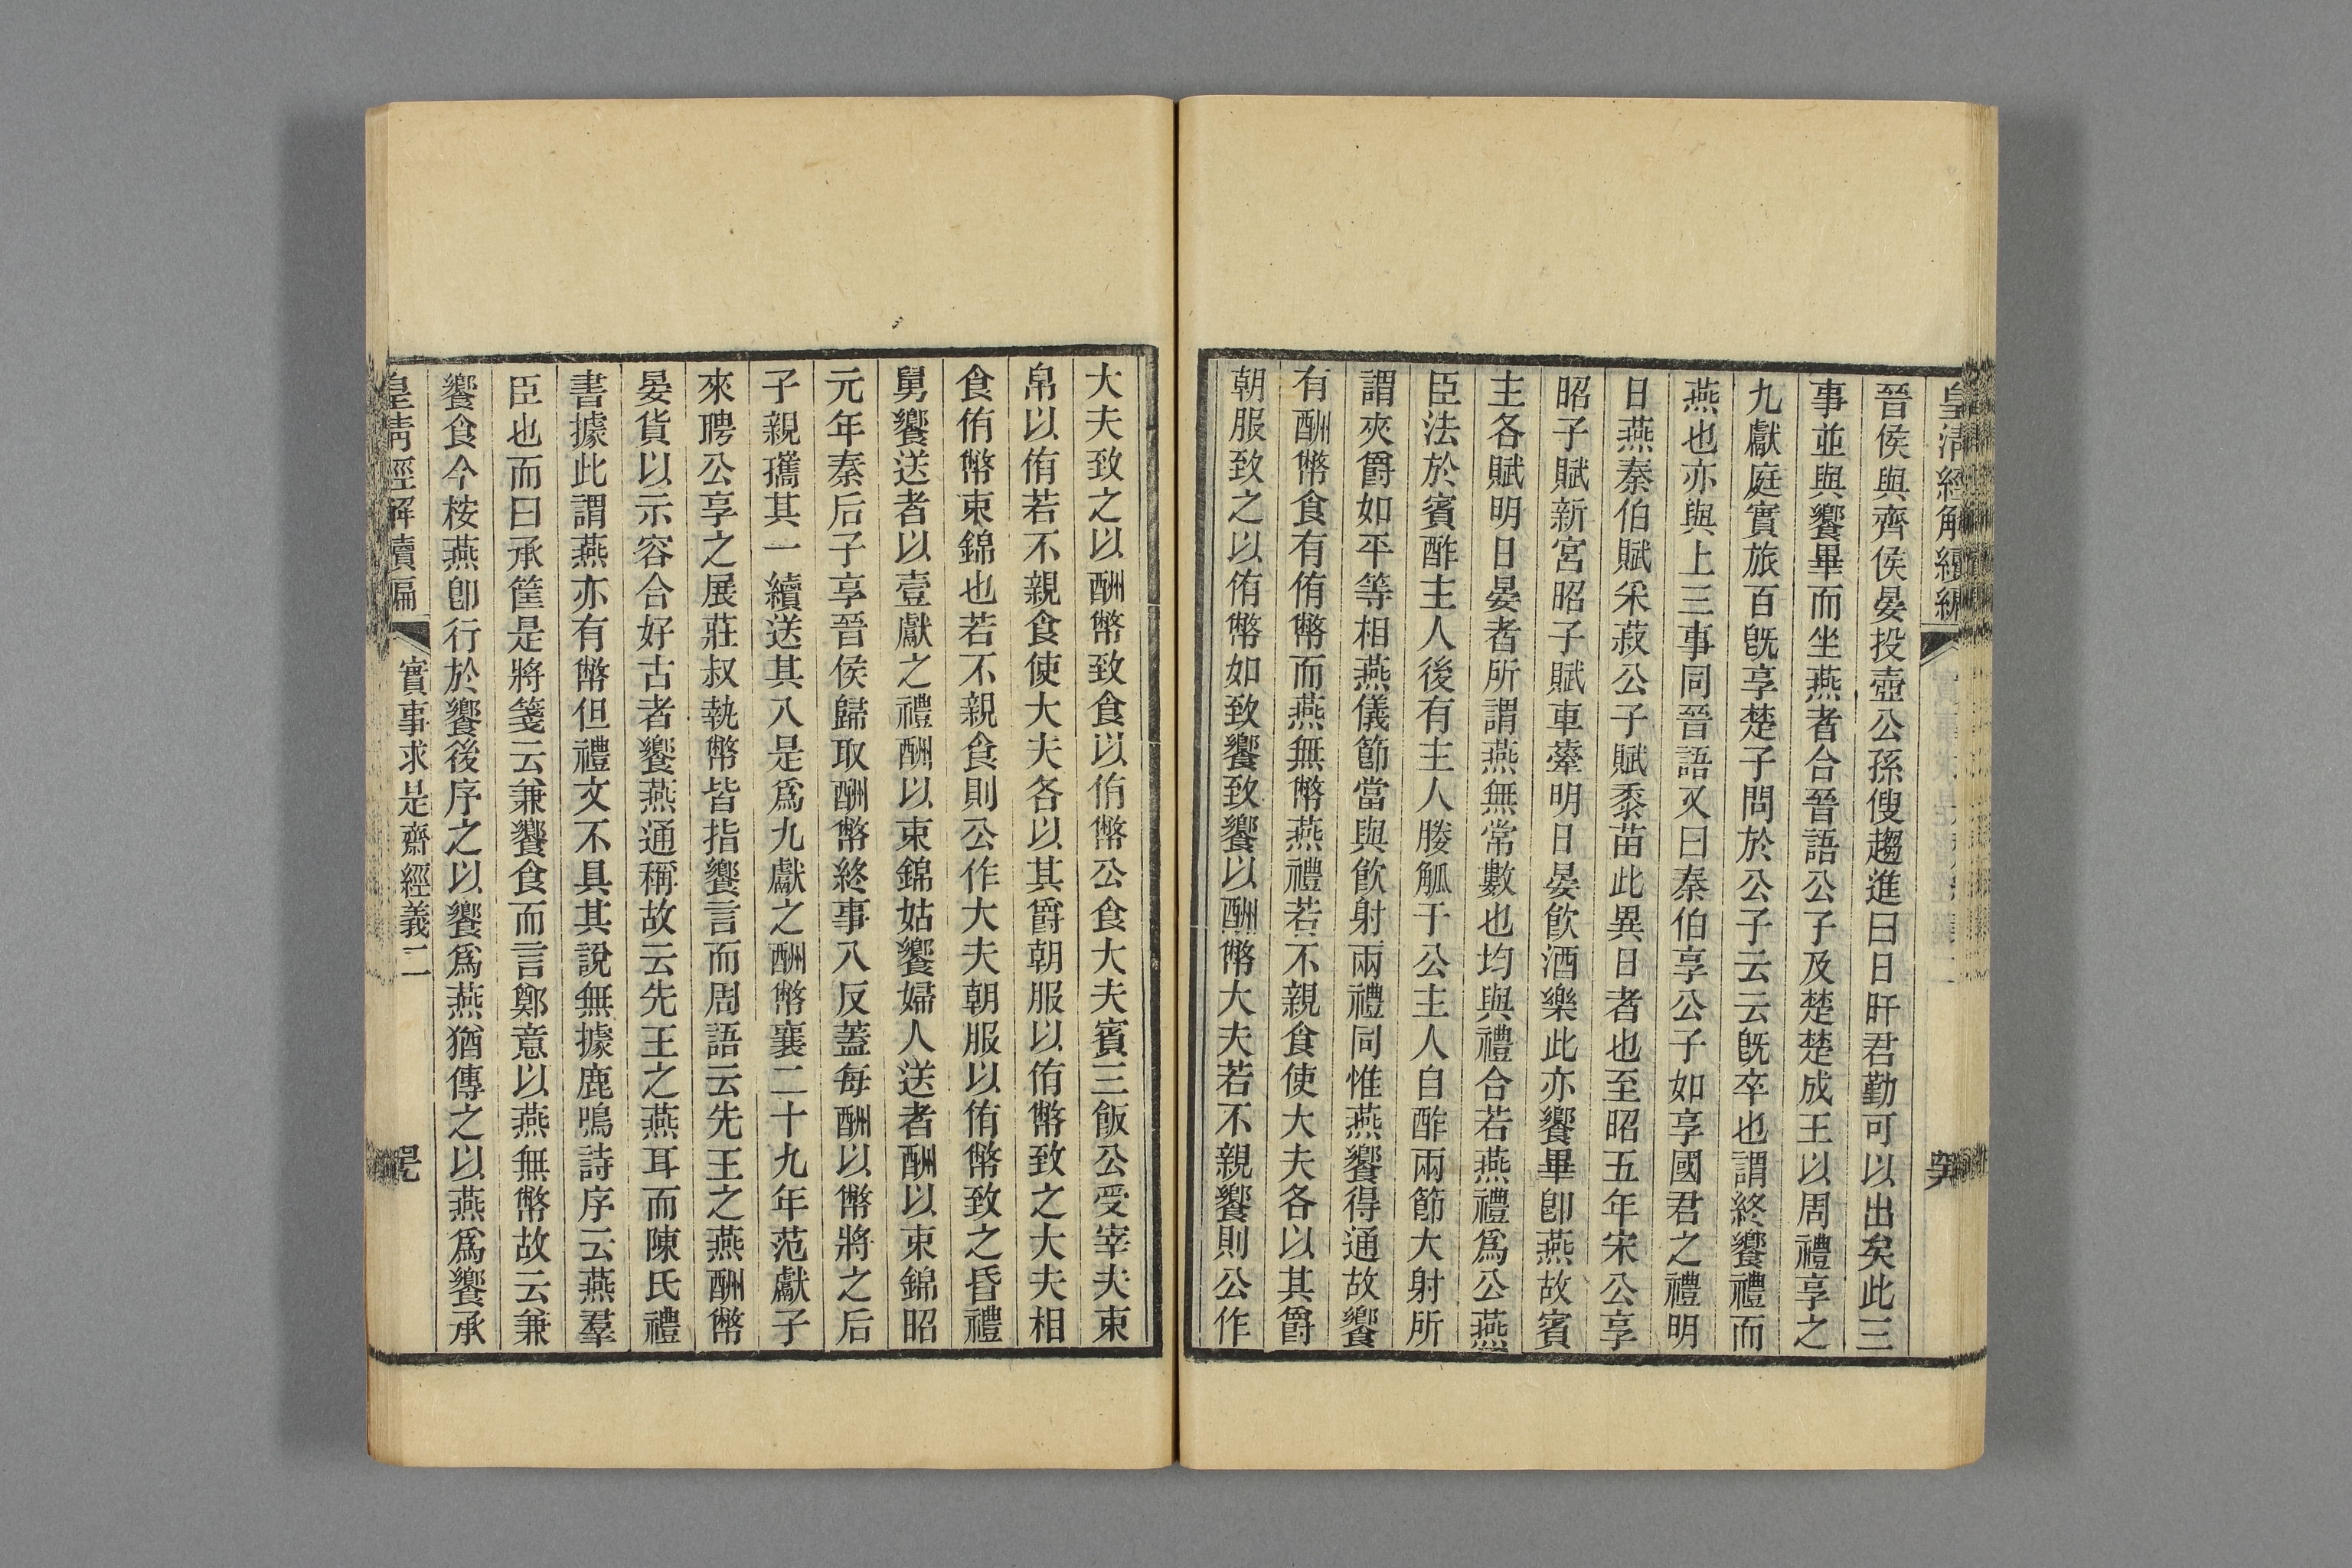 皇清經解續編
晉侯與齊侯晏投壺公孫傁趨進曰日旰君勤可以出矣此三
事並與饗畢而坐燕者合晉語公子及楚楚成王以周禮享之
九獻庭實旅百旣享楚子問於公子云云旣卒也謂終饗禮而
燕也亦與上三事同晉語又曰秦伯享公子如享國君之禮明
日燕秦伯賦采菽公子賦黍苗此異日者也至昭五年宋公享
昭子賦新宮昭子賦車舝明日晏飮酒樂此亦饗畢卽燕故賓
主各賦明日晏者所謂燕無常數也均與禮合若燕禮爲公燕
臣法於賓酢主人後有主人媵觚于公主人自酢兩節大射所
謂夾爵如平等相燕儀節當與飮射兩禮同惟燕饗得通故饗
有酬幣食有侑幣而燕無幣燕禮若不親食使大夫各以其爵
朝服致之以侑幣如致饗致饗以酬幣大夫若不親饗則公作
大夫致之以酬幣致食以侑幣公食大夫賓三飯公受宰夫束
帛以侑若不親食使大夫各以其爵朝服以侑幣致之大夫相
食侑幣束錦也若不親食則公作大夫朝服以侑幣致之昏禮
舅饗送者以壹獻之禮酬以束錦姑饗婦人送者酬以束錦昭
元年秦后子享晉侯歸取酬幣終事八反蓋每酬以幣將之后
子親㩦其一續送其八是爲九獻之酬幣襄二十九年范獻子
來聘公享之展莊叔執幣皆指饗言而周語云先王之燕酬幣
晏貨以示容合好古者饗燕通稱故云先王之燕耳而陳氏禮
書據此謂燕亦有幣但禮文不具其說無據鹿鳴詩序云燕羣
臣也而曰承筐是將箋云兼饗食而言鄭意以燕無幣故云兼
饗食今桉燕卽行於饗後序之以饗爲燕猶傳之以燕爲饗承
皇清經解續編
實事求是齋經義二